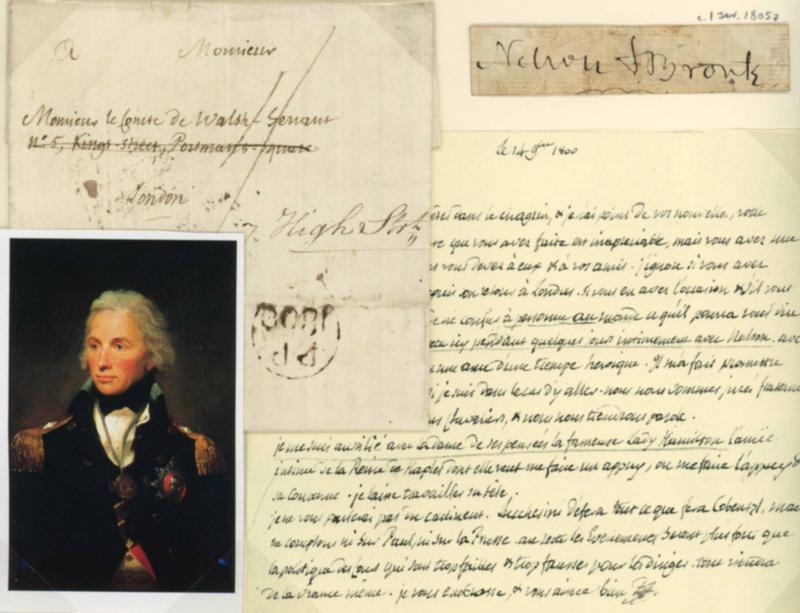 c. 1 JAN. 1805
Nelson & Bronte
A Monsieur
Monsieur le Comte de Walsh-Serrant
n° 5, Kings-street, Portman-Square
London
7, High Str
1800
PP
le 14 9bre 1800
dans le chagrin, & je n'ai point de vos nouvelles, votre
que vous avez faite est inexprimable, mais vous avez une
vous devez à eux & à vos amis. j'ignore si vous avez
retour à Londres. Si vous en avez l'occasion & s'il vous
ne confiez à personne au monde ce qu'il pourra vous dire
pendant quelques jours intimement avec Nelson, avec
une ame d'une trempe heroique. Il m'a fait promettre
si je suis dans le cas d'y aller. nous nous sommes jurés
& nous nous tiendrons parole.
je me suis aussi lié avec la dame de ses pensées la fameuse Lady Hamilton l'amie
intime de la Reine de Naples dont elle veut me faire un appuy, ou me faire l'appuy de
sa couronne. je laisse travailler sa tête.
je ne vous parlerai pas du continent. defera tout ce que fera Cobentzl, mais
ne comptons ni sur Paul, ni sur la Prusse. au reste les Evenements seront plus forts que
la politique des cours qui sont trop foibles & trop fausses pour les diriger. tout viendra
de la France même. je vous embrasse, & vous aime bien